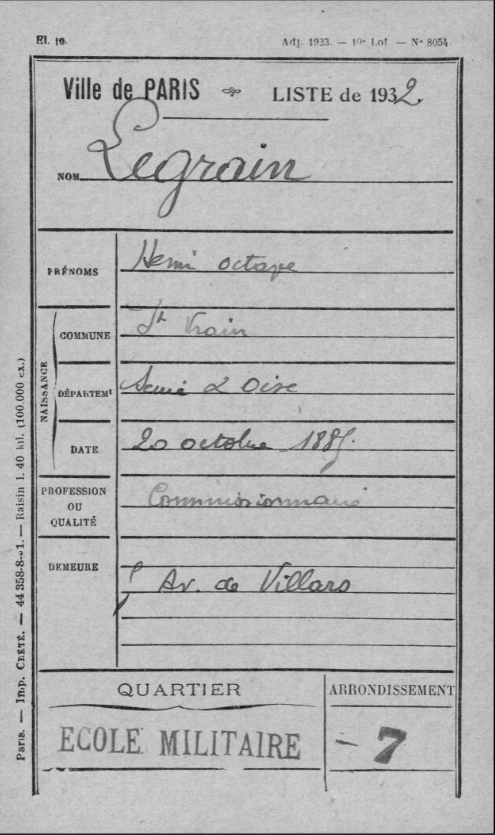 El. 10. Adj. 1923. — 10e Lot — No 8054
Ville de PARIS LISTE de 1932.
NOM Legrain
PRÉNOMS Henri octave
NAISSANCE
COMMUNE St Vrain
DÉPARTEMt Seine & Oise
DATE 20 octobre 1885.
PROFESSION OU QUALITÉ Commissionnaire
DEMEURE
Av. de Villars
QUARTIER ARRONDISSEMENT
ECOLE MILITAIRE — 7
Paris. — Imp. CRÉTÉ. — 44 358-8-21. — Raisin 1. 40 kil. (100.000 ex.)